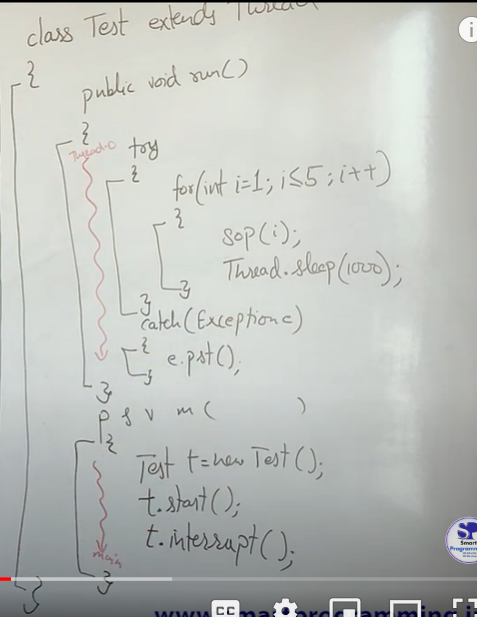 class Test extends Thread
{
public void run()
{
Thread-0
try
{
for(int i=1; i≤5; i++)
{
sop(i);
Thread.sleep(1000);
}
}
catch(Exception e)
{
e.pst();
}
}
p s v m (         )
{
Test t=new Test();
t.start();
t.interrupt();
main
}
}
SP
Smart
Programm
CC